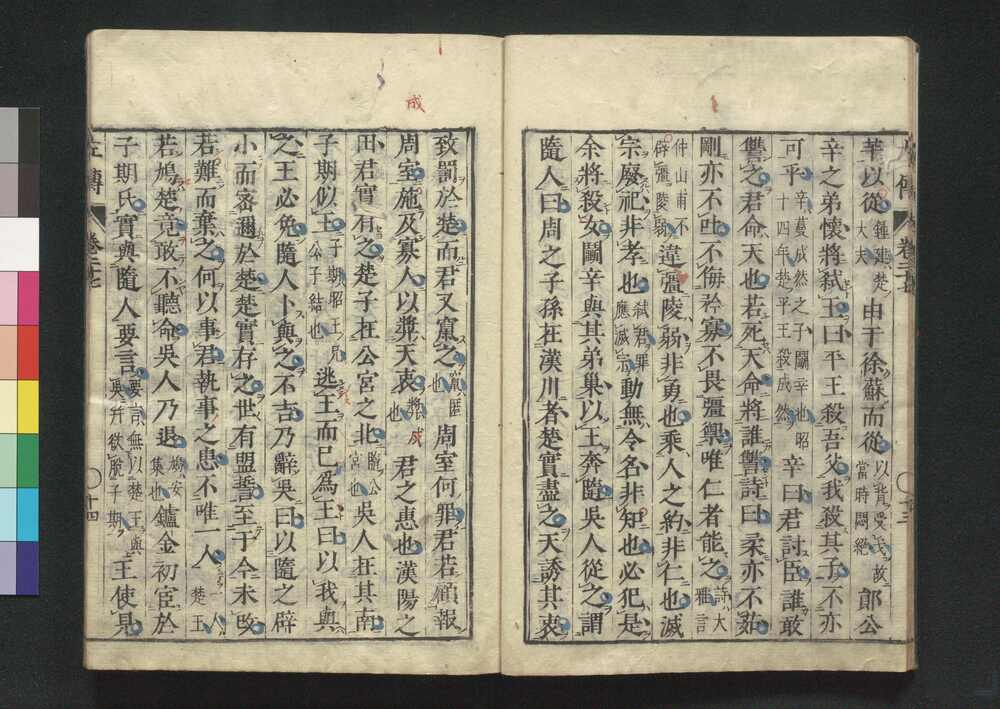 華以從鍾建楚大夫由于徐蘇而從以背受戈故當時悶絕鄖公
辛之弟懷將弑王曰平王殺吾父我殺其子不亦
可乎辛蔓成然之子鬪辛也昭十四年楚平王殺成然辛曰君討臣誰敢
讐之君命天也若死天命將誰讐詩曰柔亦不茹
剛亦不吐不侮矜寡不畏彊禦唯仁者能之詩大雅言
仲山甫不辟彊陵弱違彊陵弱非勇也乘人之約非仁也滅
宗廢祀非孝也弑君罪應滅宗動無令名非知也必犯是
余將殺女鬪辛與其弟巢以王奔隨吳人從之謂
隨人曰周之子孫在漢川者楚實盡之天誘其衷
左傳
卷二十七
十三
致罰於楚而君又竄之竄匿也周室何罪君若顧報
周室施及寡人以奬天衷奬成也君之惠也漢陽之
田君實有之楚子在公宮之北隨公宮也吳人在其南
子期似王子期昭王兄公子結也逃王而己爲王曰以我與
之王必免隨人卜與之不吉乃辭吳曰以隨之辟
小而密邇於楚楚實存之世有盟誓至于今未改
若難而棄之何以事君執事之患不唯一人一人楚王
若鳩楚竟敢不聽命吳人乃退鳩安集也鑢金初宦於
子期氏實與隨人要言要言無以楚王與吳幷欲脫子期王使見
左傳
卷二十七
十四
成
成